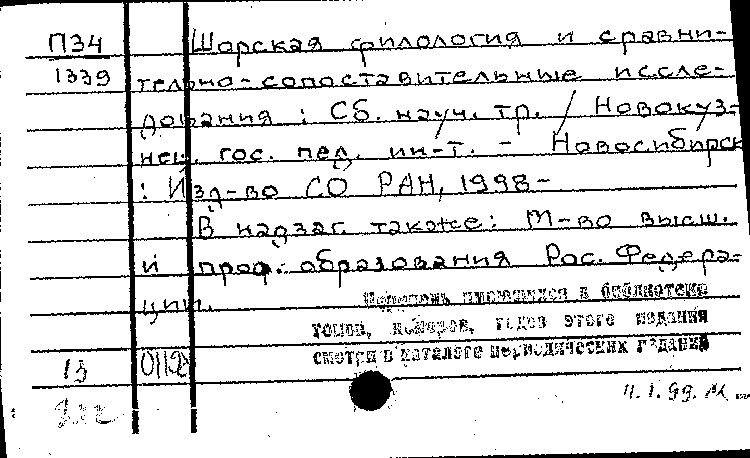 П34 Шорская филология и сравни-
1339 тельно-сопоставительные иссле-
дования : Сб. науч. тр. / Новокуз-
нец. гос. пед. ин-т. - Новосибирск
: Изд-во СО РАН, 1998-
В надзаг также: М-во высш.
и проф. образования Рос. Федера-
ции.
Перечень имеющихся в библиотеке
томов, номеров, годов этого издания
смотри в каталоге периодических изданий
13
11.1.99.